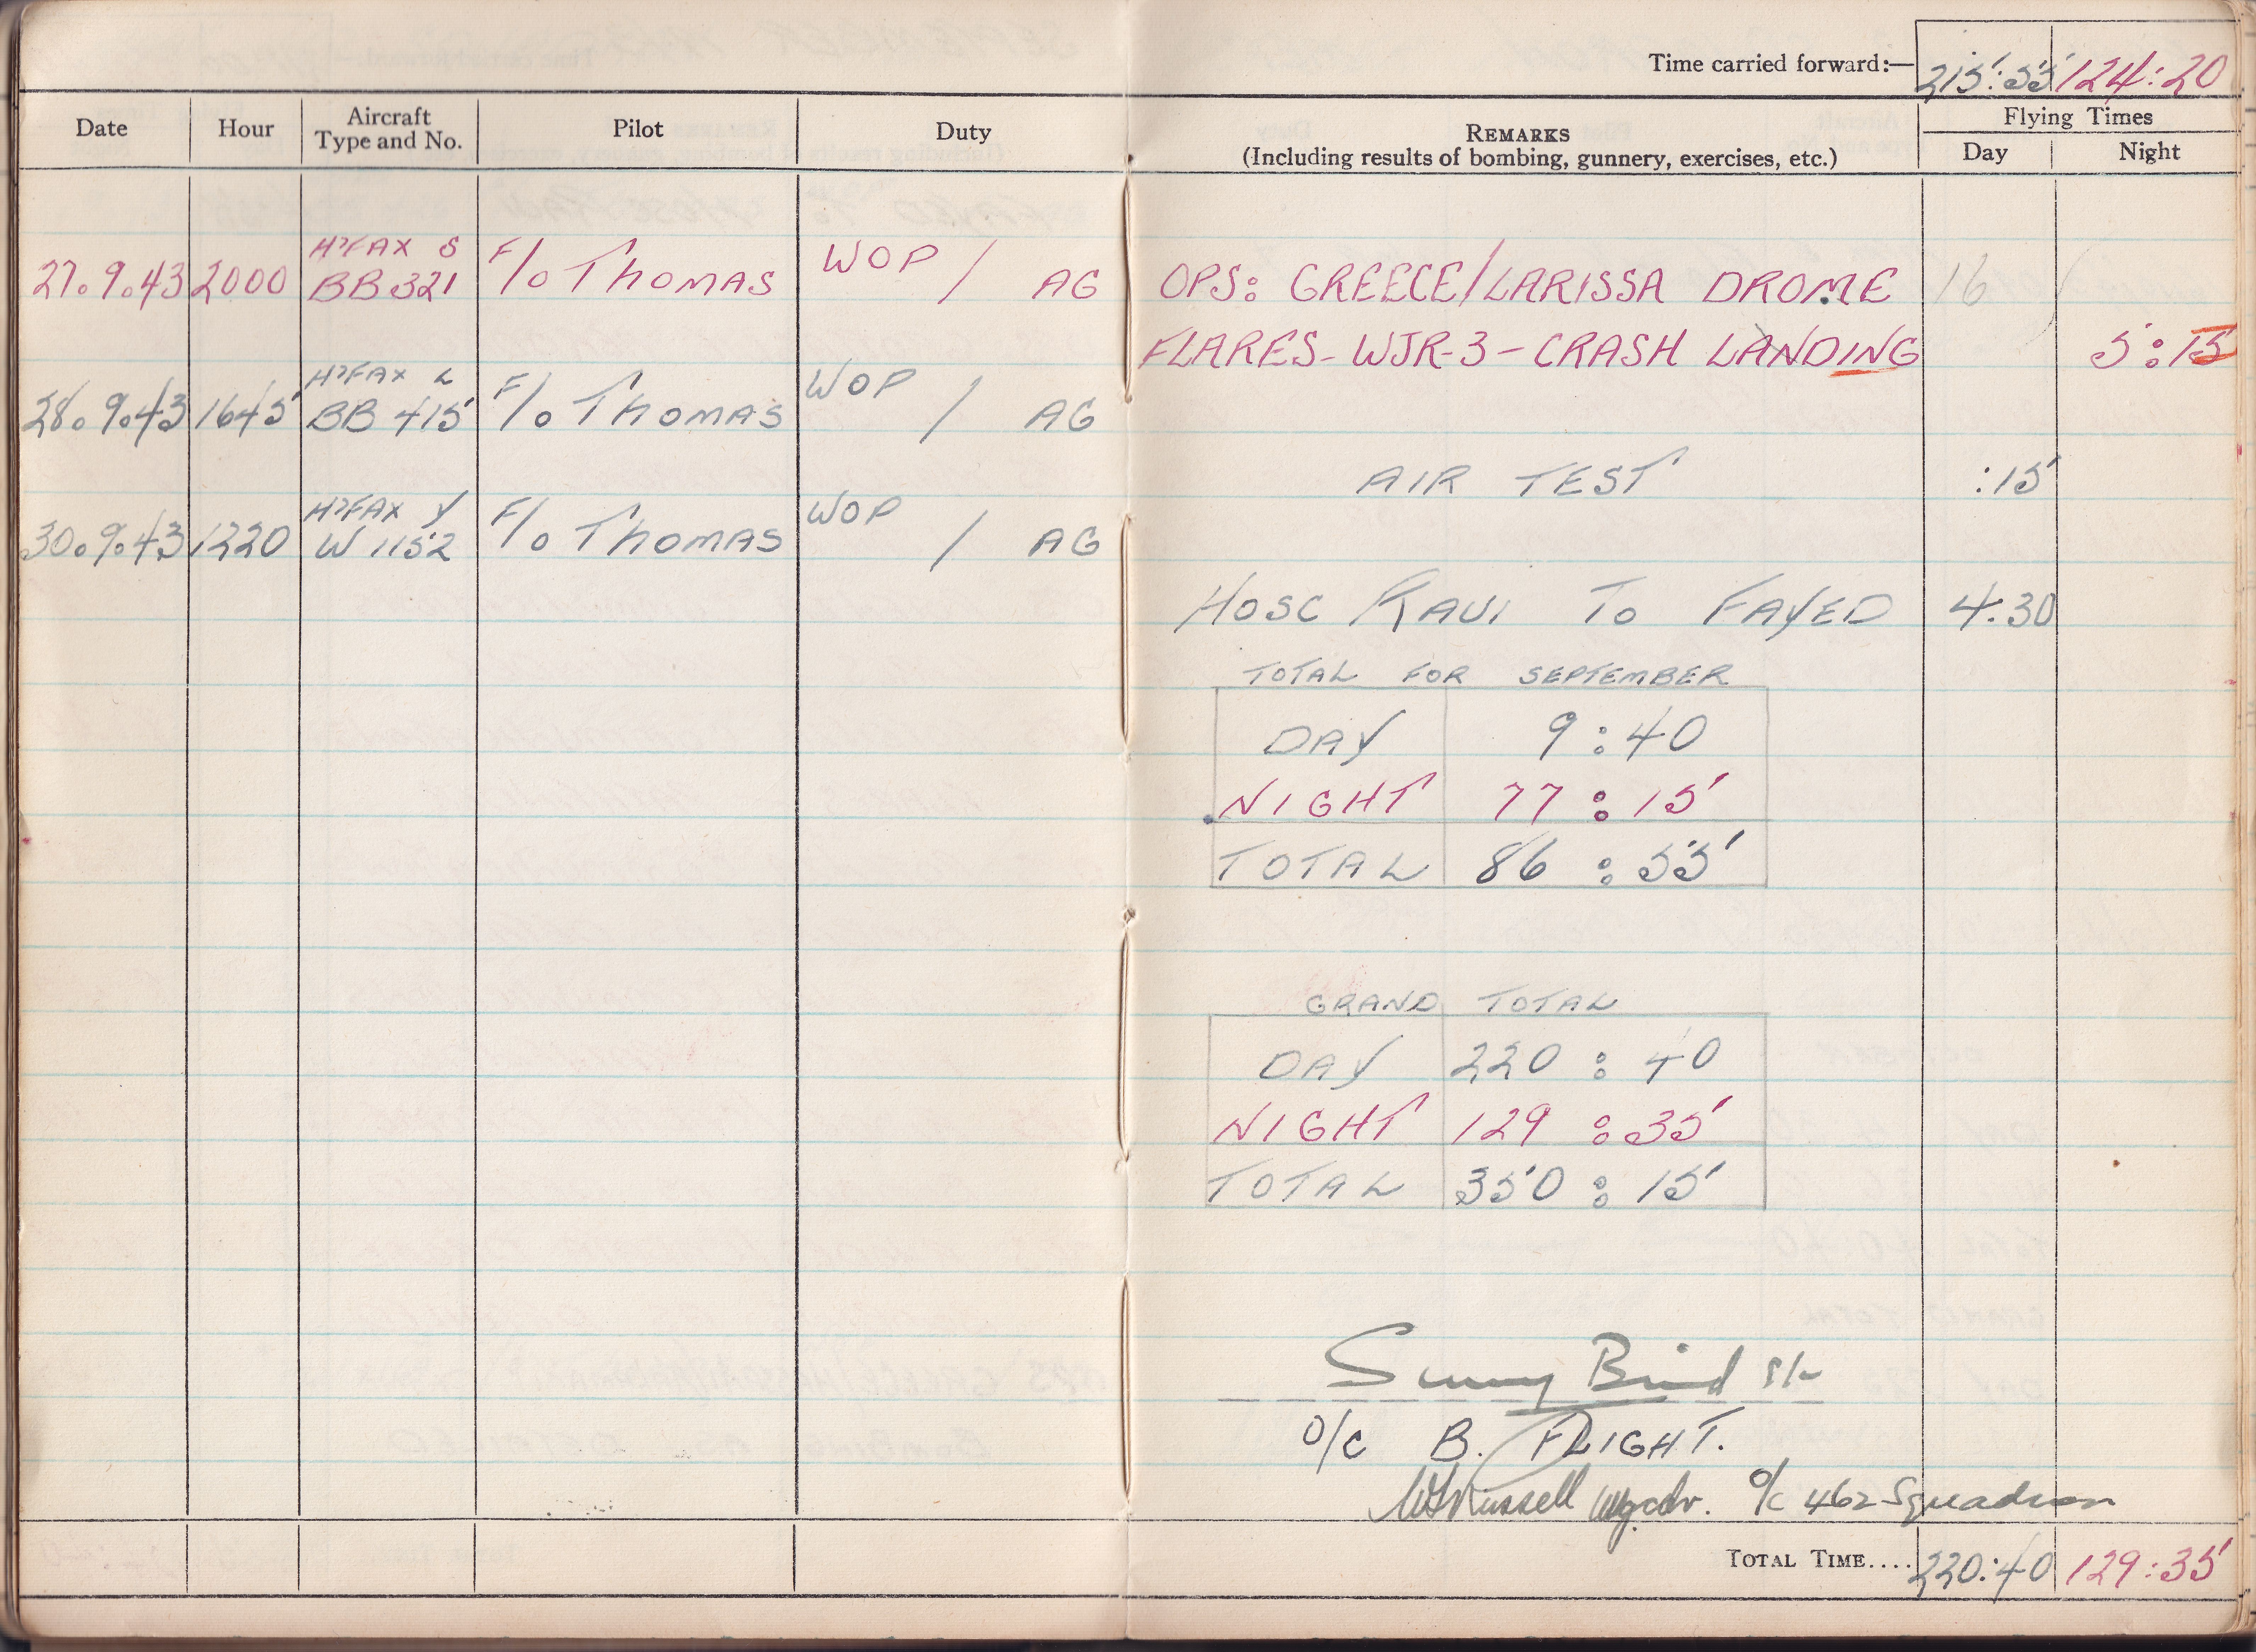 Time carried forward:— 215:55 124:20
Date Hour Aircraft Type and No. Pilot Duty REMARKS (Including results of bombing, gunnery, exercises, etc.) Flying Times Day Night
27.9.43 2000 H'FAX S BB 321 F/O THOMAS WOP / AG OPS: GREECE/LARISSA DROME 16
FLARES - WJR-3 - CRASH LANDING 5:15
28.9.43 1645 H'FAX L BB 415 F/O THOMAS WOP / AG
AIR TEST :15
30.9.43 1220 H'FAX Y W 1152 F/O THOMAS WOP / AG
HOSC RAUI TO FAYED 4.30
TOTAL FOR SEPTEMBER
DAY 9:40
NIGHT 77:15
TOTAL 86:55
GRAND TOTAL
DAY 220:40
NIGHT 129:35
TOTAL 350:15
O/C B. FLIGHT.
Russell Wg.cdr. O/C 462 Squadron
TOTAL TIME.... 220:40 129:35